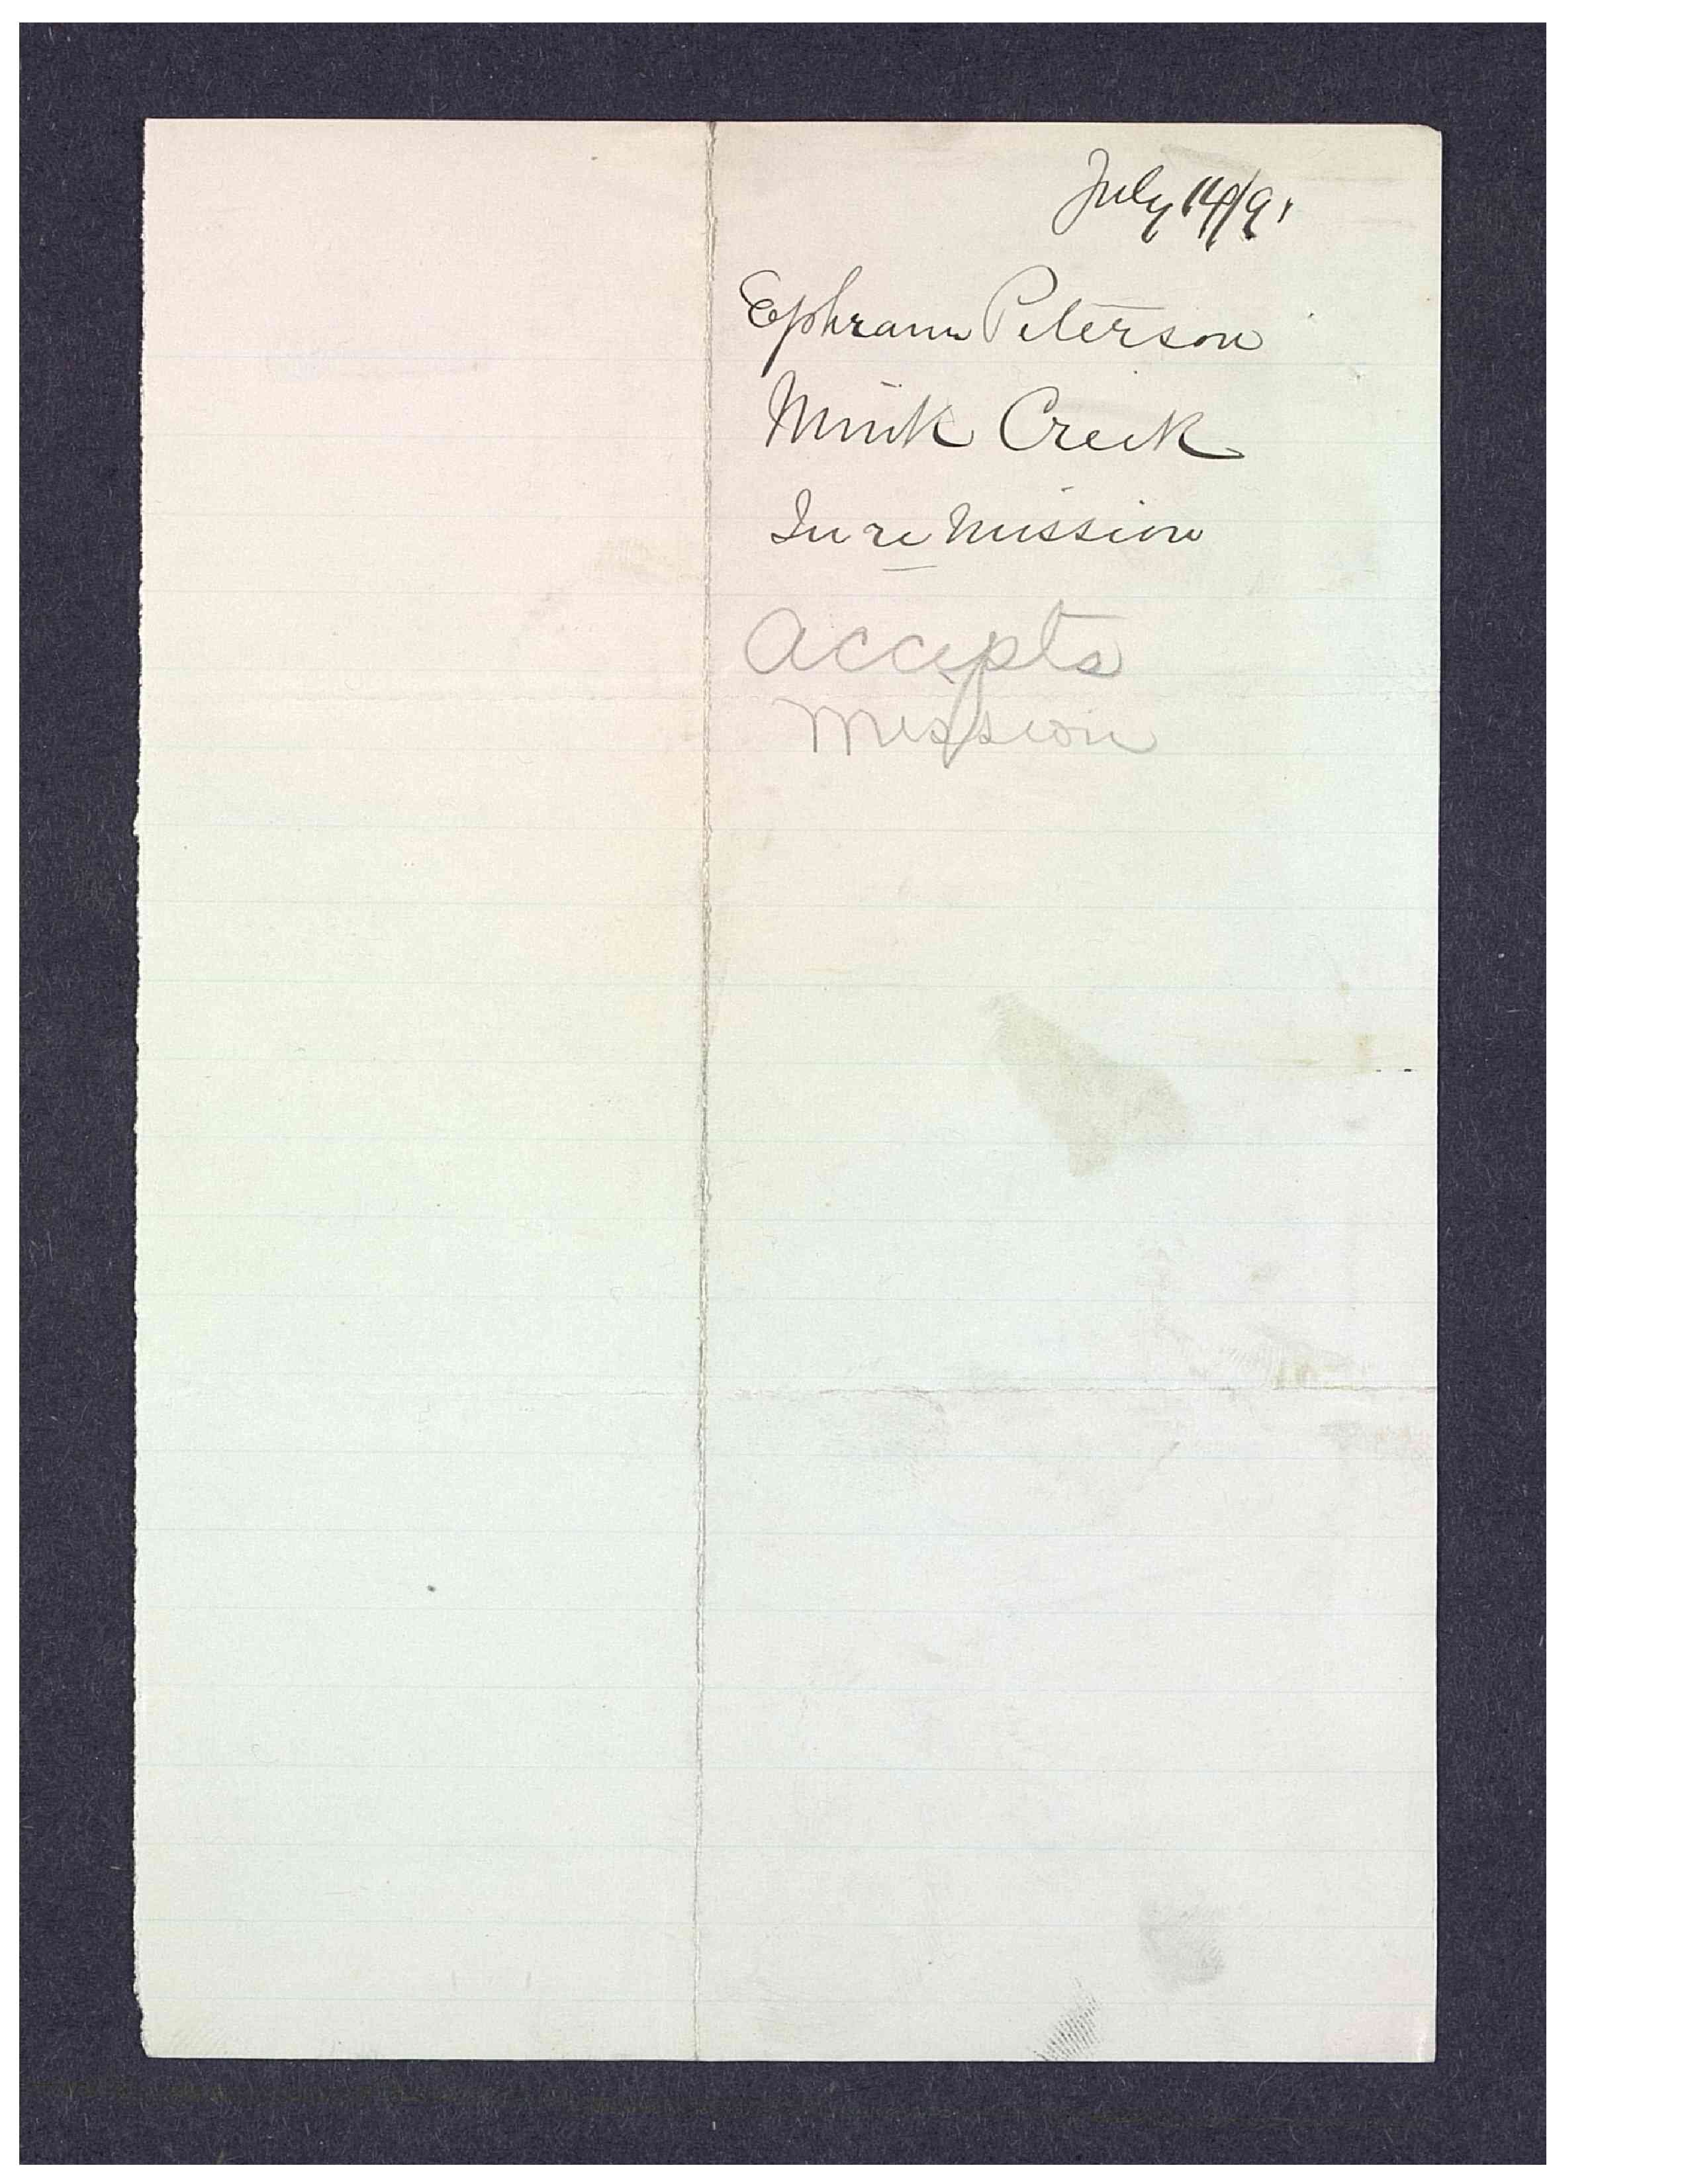 July 14/91
Ephraim Peterson
Mink Creek
In re Mission
accepts
mission